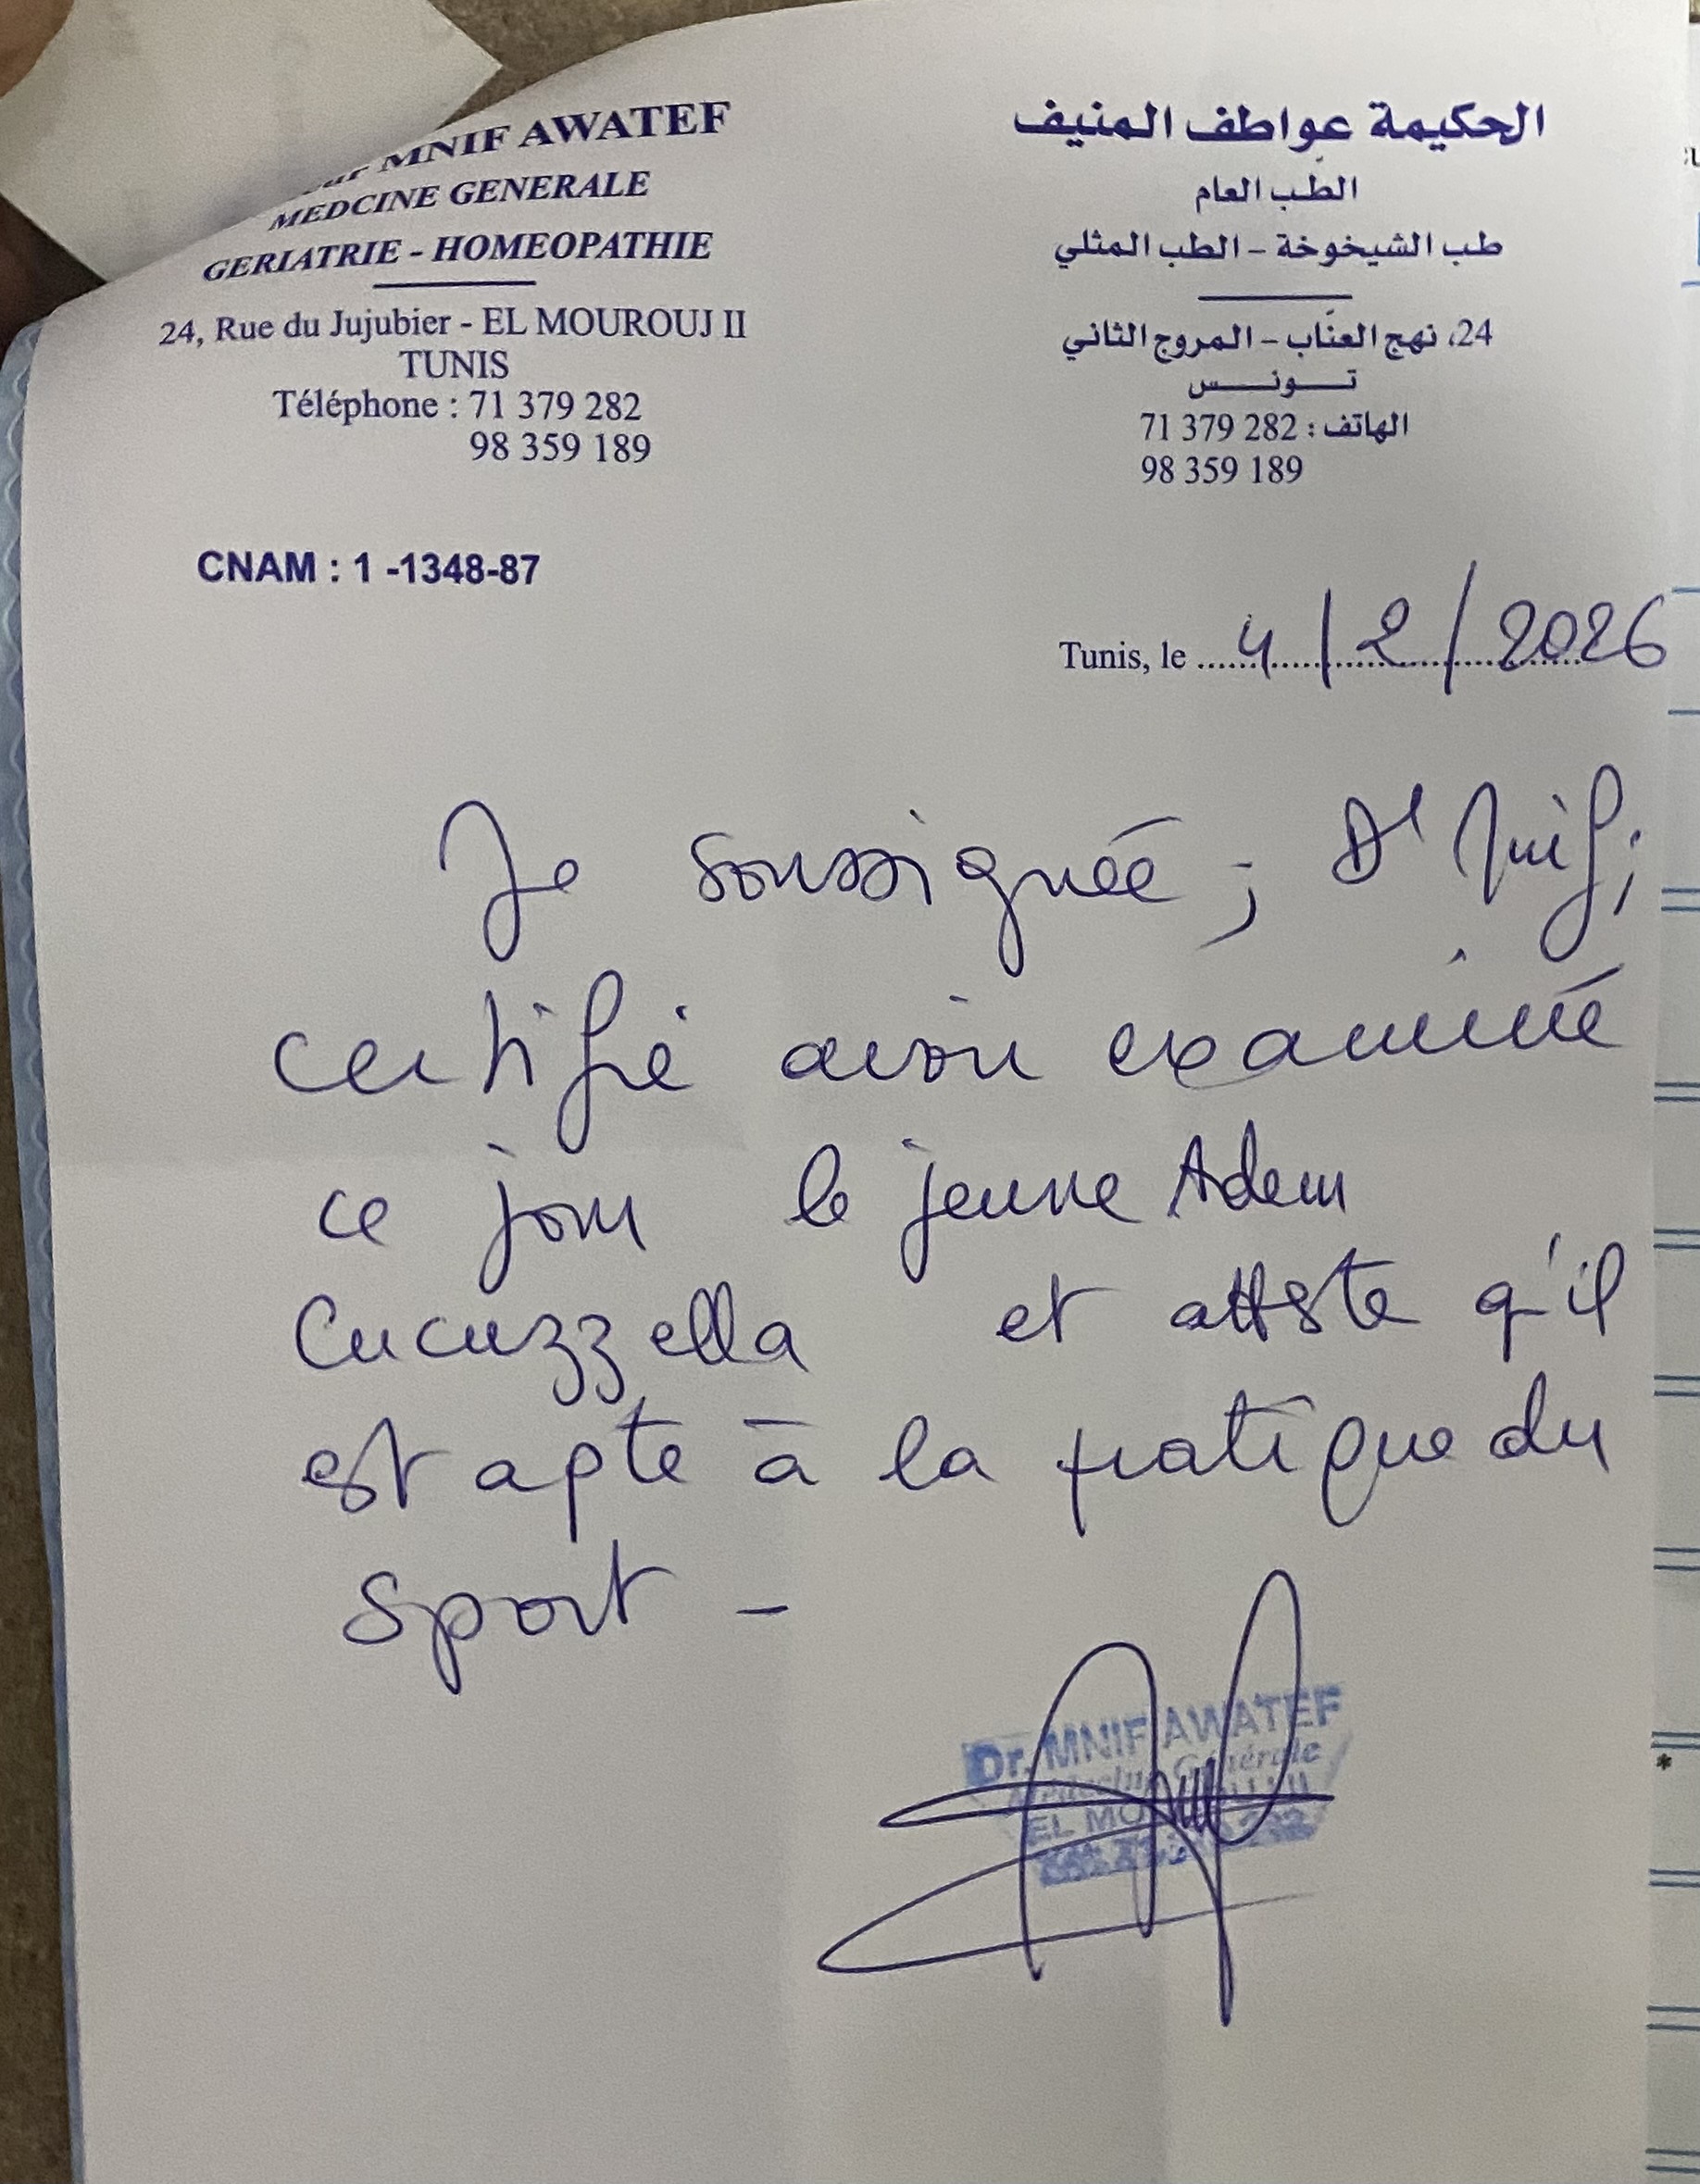 MNIF AWATEF
MEDCINE GENERALE
GERIATRIE - HOMEOPATHIE
24, Rue du Jujubier - EL MOUROUJ II
TUNIS
Téléphone : 71 379 282
98 359 189
CNAM : 1 -1348-87
الحكيمة عواطف المنيف
الطب العام
طب الشيخوخة - الطب المثلي
24، نهج العناب - المروج الثاني
تونس
الهاتف : 71 379 282
98 359 189
Tunis, le 4/2/2026
Je soussignée ; Dr Mnif ;
certifie avoir examiné
ce jour le jeune Adem
Cucuzzella et attste q'il
est apte à la pratique du
sport -
Dr. MNIF AWATEF
Médecine Générale